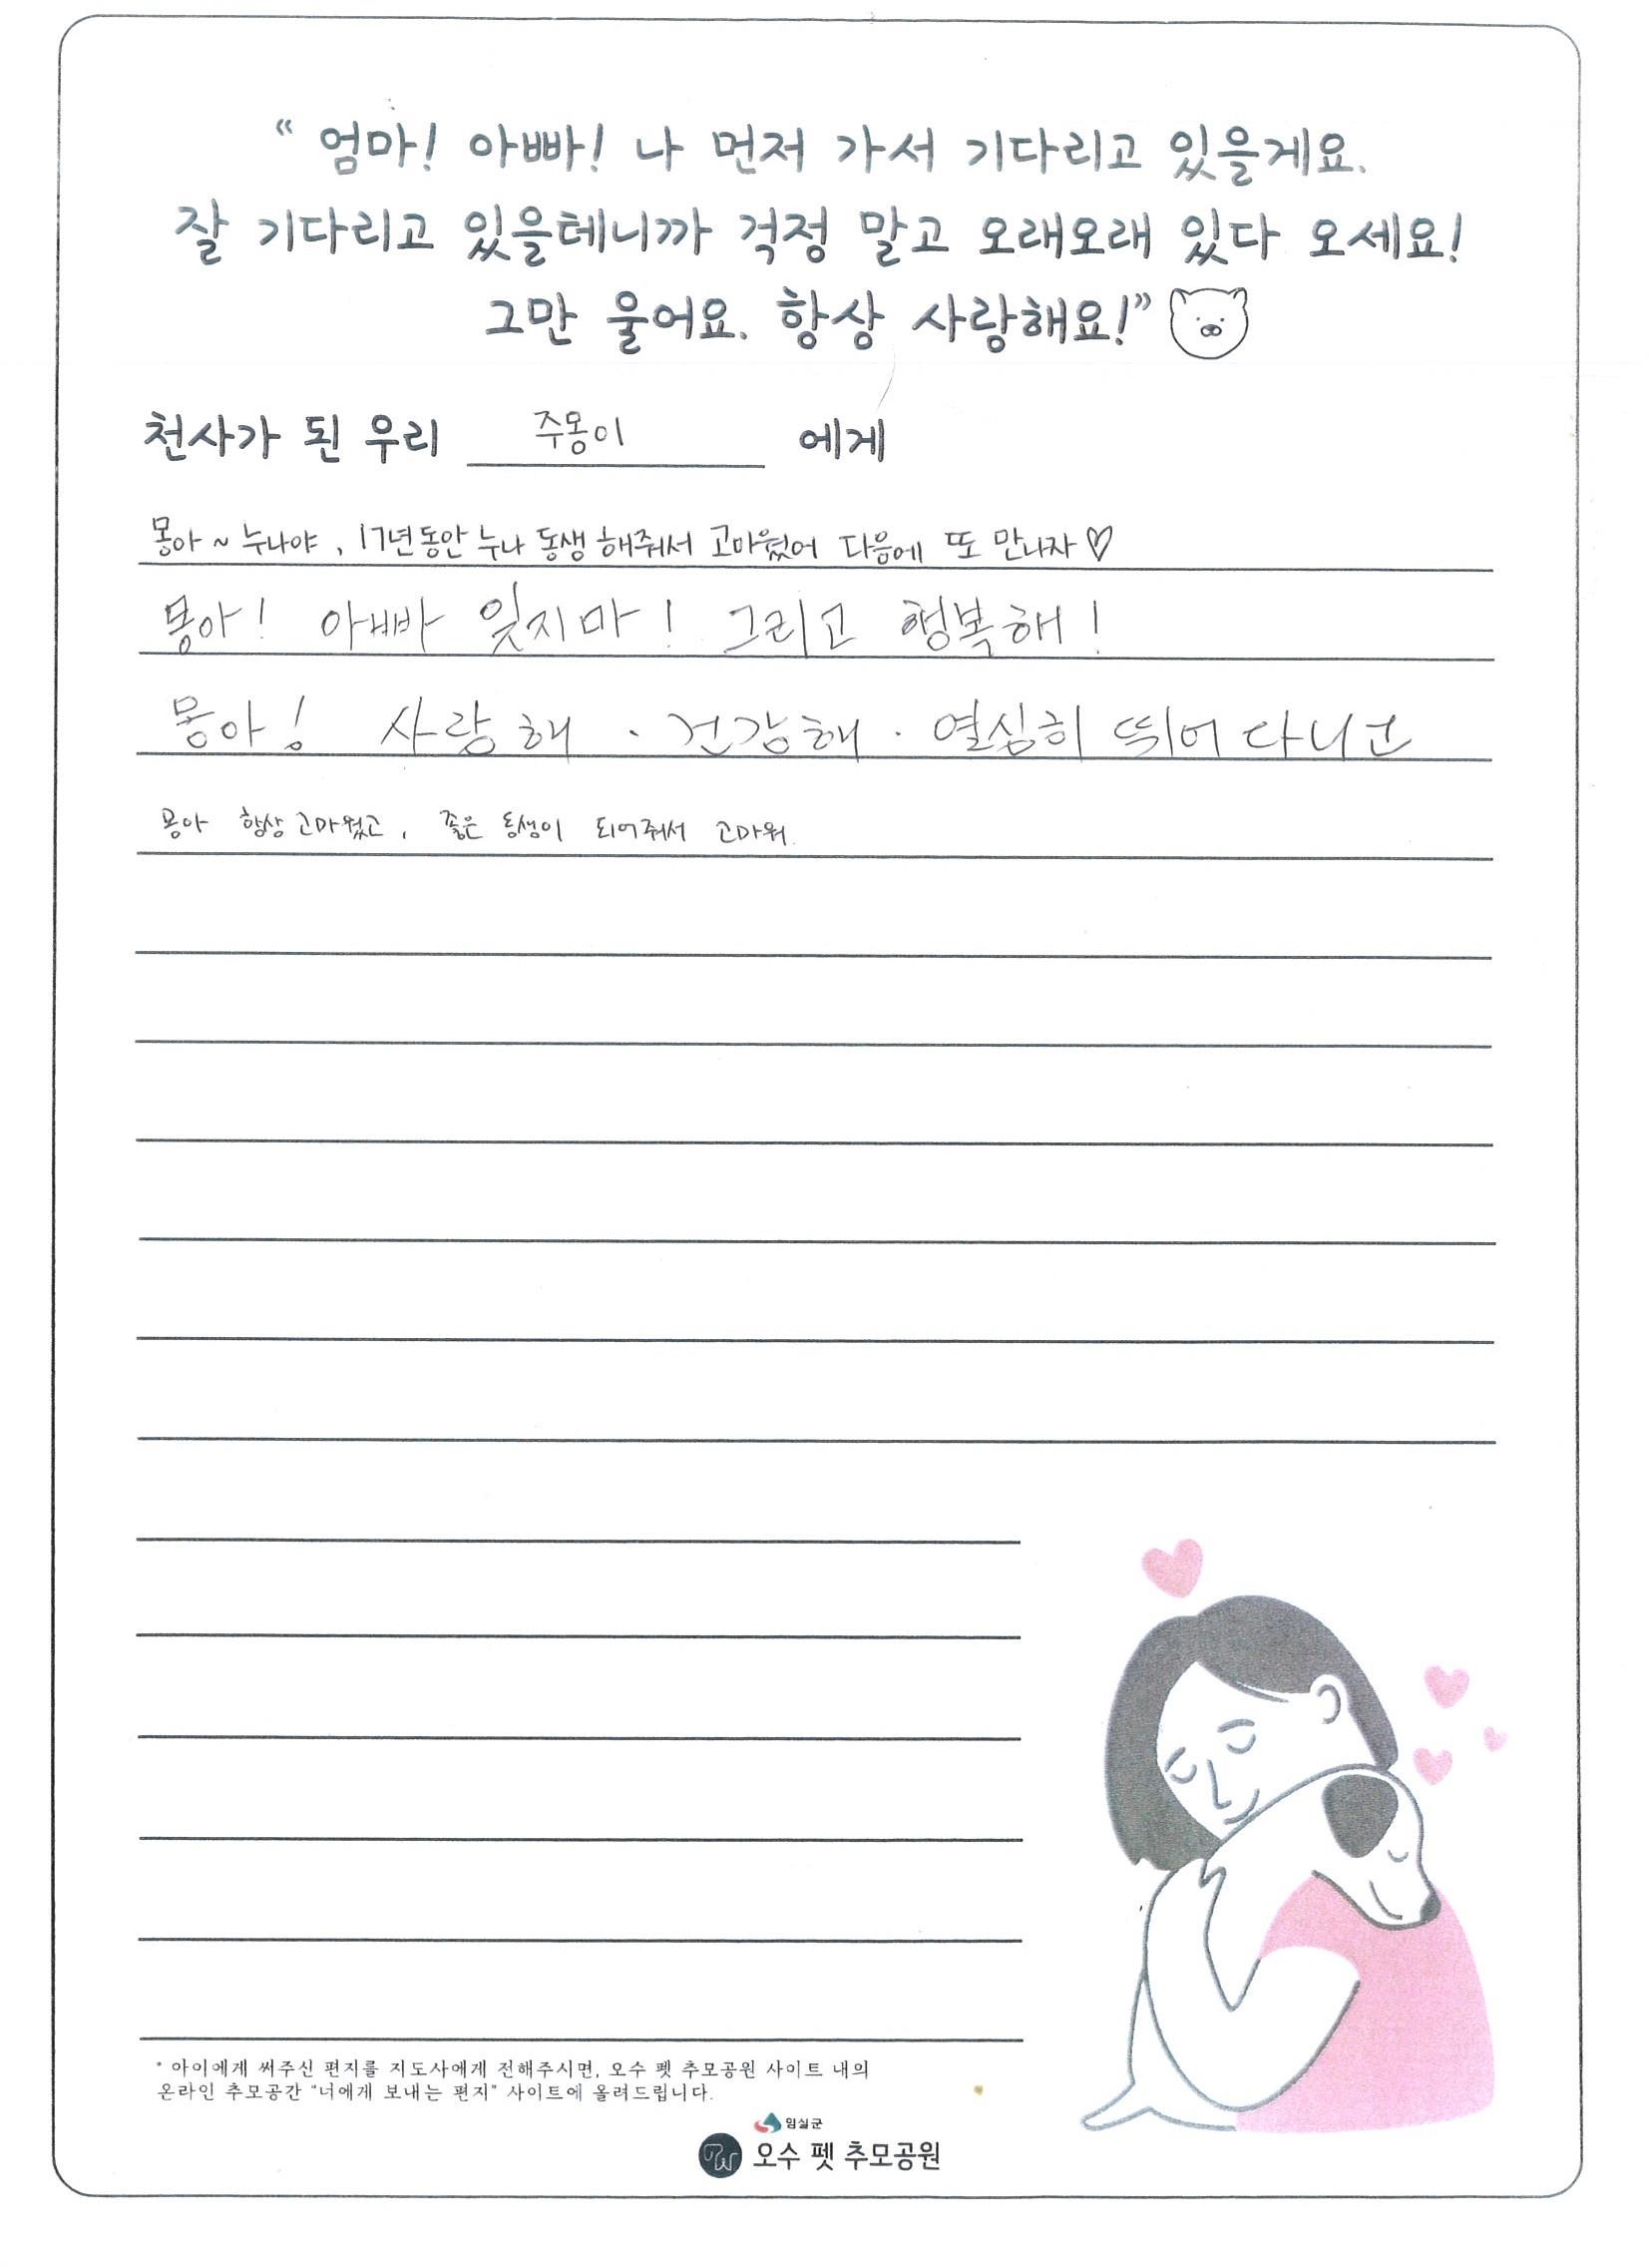 “ 엄마! 아빠! 나 먼저 가서 기다리고 있을게요.
잘 기다리고 있을테니까 걱정 말고 오래오래 있다 오세요!
그만 울어요. 항상 사랑해요!”
천사가 된 우리 주몽이 에게
몽아~누나야, 17년동안 누나 동생 해줘서 고마웠어 다음에 또 만나자♡
몽아! 아빠 잊지마! 그리고 행복해!
몽아! 사랑해. 건강해. 열심히 뛰어다니고
몽아 항상 고마웠고, 좋은 동생이 되어줘서 고마워.
* 아이에게 써주신 편지를 지도사에게 전해주시면, 오수 펫 추모공원 사이트 내의
온라인 추모공간 “너에게 보내는 편지” 사이트에 올려드립니다.
임실군
오수 펫 추모공원